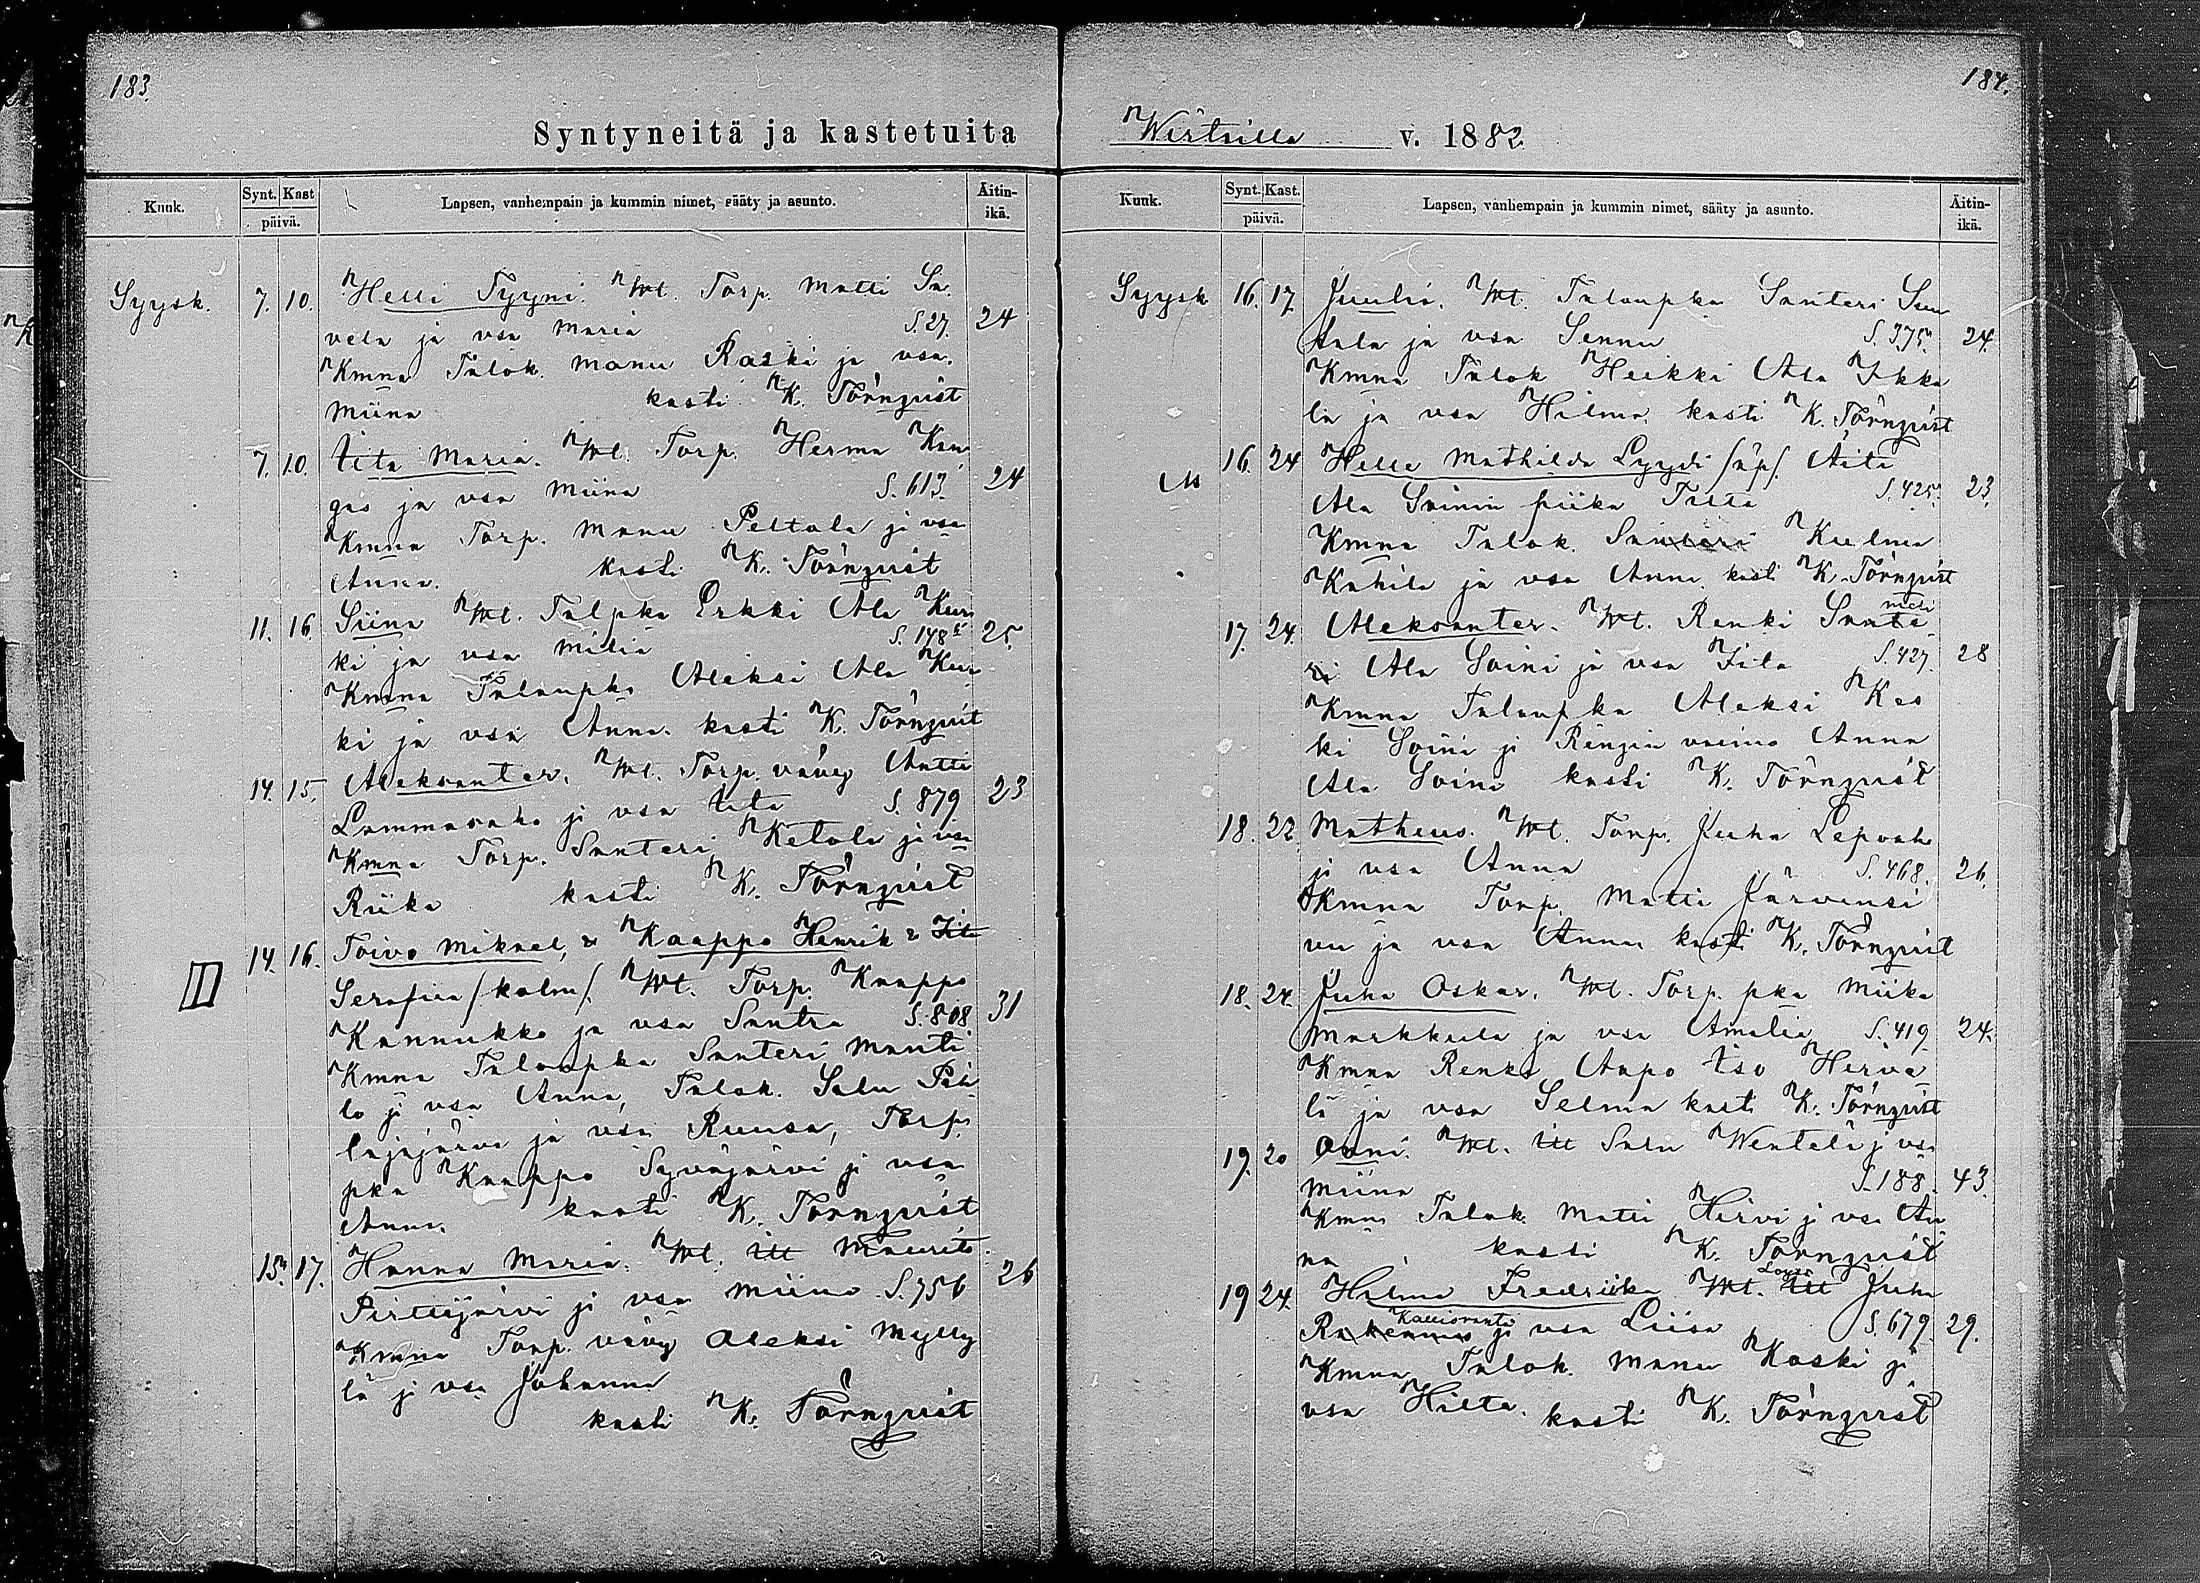 183.
Syntyneitä ja kastetuita
Kuuk. Synt. Kast päivä. Lapsen, vanhempain ja kummin nimet, sääty ja asunto. Äitin-ikä.
Syysk. 7. 10. Helli Tyyni. Wt. Torp. Matti Sa
vela ja vsa Maria S. 27. 24
Kmna Talok. Manu Raski ja vsa.
Miina kasti K. Törnqvist
7. 10. Iita Maria. Wt. Torp. Herma Kan
gas ja vsa Miina S. 613. 24
Kmna Torp. Manu Peltola ja vsa
Anna. kasti K. Törnqvist
11. 16. Siina Wt. Talpka Erkki Ala Kur
ki ja vsa Milia S. 148 25.
Kmna Talonpka Aleksi Ala Kur
ki ja vsa Anna. kasti K. Törnqvist
14. 15. Aleksanter. Wt. Torp. vävy Antti
Lammasaho ja vsa Iita S. 879 23
Kmna Torp. Santeri Ketola ja vsa
Riika kasti K. Törnqvist
14. 16. Toivo Mikael, & Kaappo Henrik & Iita
Serafiia /kolm/. Wt. Torp. Kaappo
Kannukko ja vsa Santra S. 808 31
Kmna Talonpka Santeri Mänti
lo ja vsa Anna, Talok. Salu Pä
läjäjärvi ja vsa Ruusa, Torp.
pka Kaappo Syväjärvi ja vsa
Anna. kasti K. Törnqvist
15. 17. Hanna Maria. Wt. Itt Maurits
Pirttijärvi ja vsa Miina S. 756 26
Kmna Torp. vävy Aleksi Mylly
lä ja vsa Johanna
kasti K. Törnqvist
184.
v. 1882.
Kuuk. Synt. Kast. päivä. Lapsen, vanhempain ja kummin nimet, sääty ja asunto. Äitin-ikä.
Syysk 16. 17. Juulia. Wt. Talonpka Santeri Sun
tala ja vsa Sennu S. 375. 24.
Kmna Talok Heikki Ala Ikka
la ja vsa Hilma kasti K. Törnqvist
16. 24 Helle Mathilda Lyydi /äp/. Äiti
Ala Soinin piika Iita S. 425. 23.
Kmna Talok. Santeri Kulma
Kahila ja vsa Anna kasti K. Törnqvist
17. 24. Aleksanter. Wt. Renki Sante
ri Ala Soini ja vsa Iita S. 427. 28
Kmna Talonpka Aleksi Kes
ki Soini ja Rengin vaimo Anna
Ala Soini kasti K. Törnqvist
18. 22 Matheus. Wt. Torp. Juha Lepoaho
ja vsa Anna S. 468. 26.
Kmna Torp. Matti Järvensi
vu ja vsa Anna kasti K. Törnqvist
18. 24. Juha Oskar. Wt. Torp. pka Miika
Markkula ja vsa Amalia S. 419 24.
Kmna Renki Aapo Iso Hervä
lä ja vsa Selma kasti K. Törnqvist
19. 20 Onni. Wt. Itt Salu Wentelä ja vsa
Miina S. 188. 43.
Kmna Talok. Matti Hirvi ja vsa An
na kasti K. Törnqvist
19 24. Hilma Fredriika Wt. Itt Juha
Kallioranta
ja vsa Liisa S. 679. 29.
Kmna Talok. Manu Koski ja
vsa Hilta. kasti K. Törnqvist